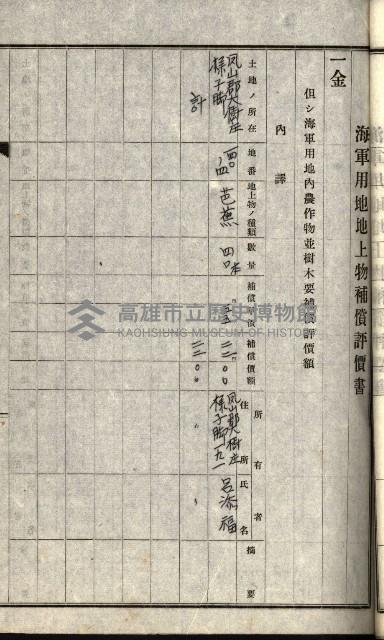 海軍用地地上物補償評價書
一金
但シ海軍用地內農作物並樹木要補償評價額
內譯
土地ノ所在
地番
地上物ノ種類
數量
補償單價
補償價額
所有者
住所
氏名
摘要
鳳山郡大樹庄
樣子脚
芭蕉
四〇本
二二〇〇
鳳山郡大樹庄
樣子脚一九一
呂添福
計
二二〇〇
高雄市立歷史博物館
KAOHSIUNG MUSEUM OF HISTORY